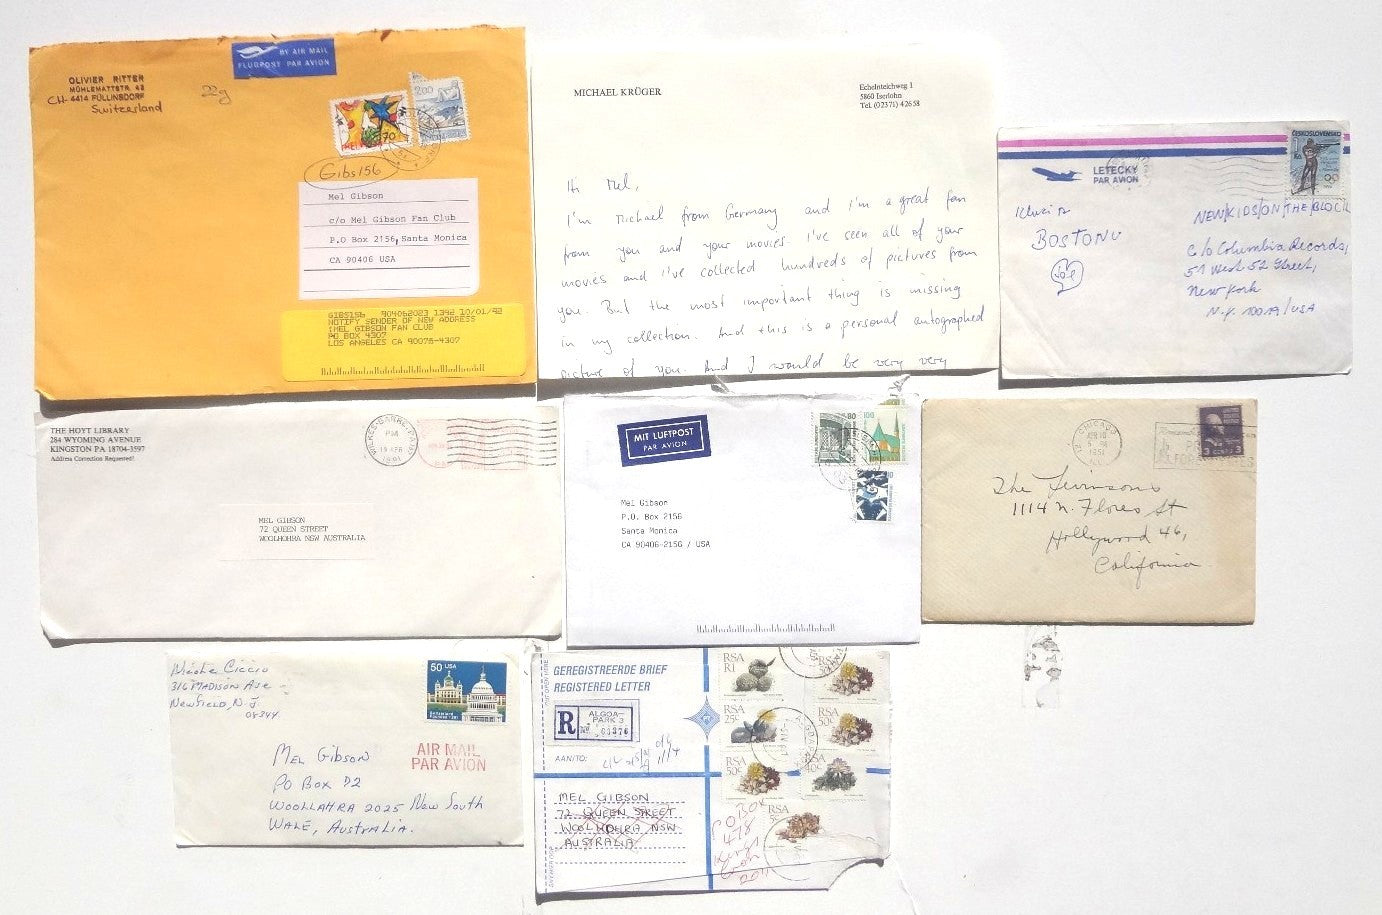 OLIVIER RITTER
MÜHLEMATTSTR. 43
CH- 4414 FÜLLINSDORF
Switzerland
22g
BY AIR MAIL
FLUGPOST PAR AVION
70
200
Gibs156
Mel Gibson
c/o Mel Gibson Fan Club
P.O Box 2156, Santa Monica
CA 90406 USA
GIBS156 904062023 1392 10/01/92
NOTIFY SENDER OF NEW ADDRESS
:MEL GIBSON FAN CLUB
PO BOX 4307
LOS ANGELES CA 90078-4307
MICHAEL KRÜGER
Echelnteichweg 1
5860 Iserlohn
Tel. (02371) 42658
Hi Mel,
I'm Michael from Germany and I'm a great fan
from you and your movies. I've seen all of your
movies and I've collected hundreds of pictures from
you. But the most important thing is missing
in my collection. And this is a personal autographed
picture of you. And I would be very very
LETECKY
PAR AVION
ČESKOSLOVENSKO
BOSTONU
Joe
NEW/KIDS/ON/THE/BLOCK
c/o Columbia Records,
51 West 52 Street,
New York
N.Y. 10019/USA
THE HOYT LIBRARY
284 WYOMING AVENUE
KINGSTON PA 18704-3597
Address Correction Requested!
WILKES-BARRE
PM
19 FEB
1991
MEL GIBSON
72 QUEEN STREET
WOOLHOHRA NSW AUSTRALIA
MIT LUFTPOST
PAR AVION
80
100
Mel Gibson
P.O. Box 2156
Santa Monica
CA 90406-2156 / USA
CHICAGO
1951
ILL.
3 CENTS 3
The Levinsons
1114 N. Flores St
Hollywood 46,
California
Nicole Ciccio
316 MADISON Ave
Newfield, N.J.
08344
50 USA
AIR MAIL
PAR AVION
MEL GIBSON
PO BOX 72
WOOLLAHRA 2025 New South
WALE, AUSTRALIA.
GEREGISTREERDE BRIEF
REGISTERED LETTER
R
ALGOA
PARK 3
No
AAN/TO:
MEL GIBSON
72 QUEEN STREET
WOOLHOHRA NSW
AUSTRALIA
P O BOX
478
Kings
2011
RSA
R1
RSA
RSA
25c
RSA
50c
RSA
50c
RSA
40c
RSA